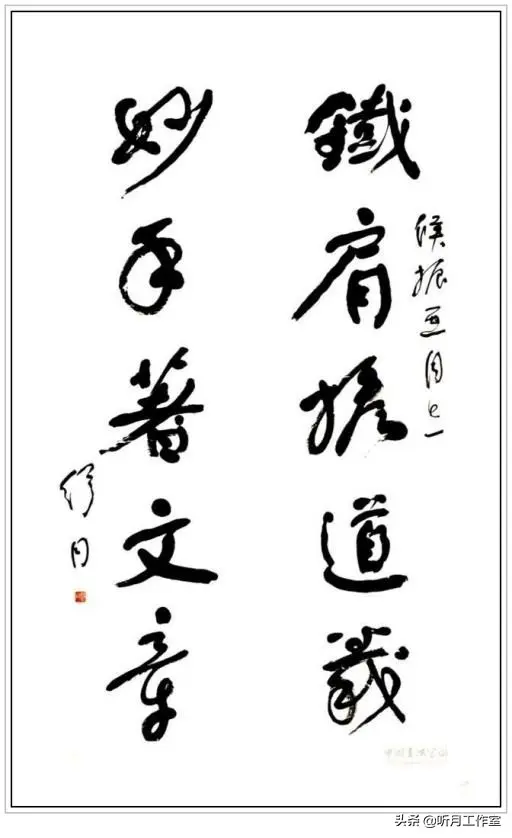 鐵肩擔道義
振亚同志
妙手著文章
头条 @听月工作室